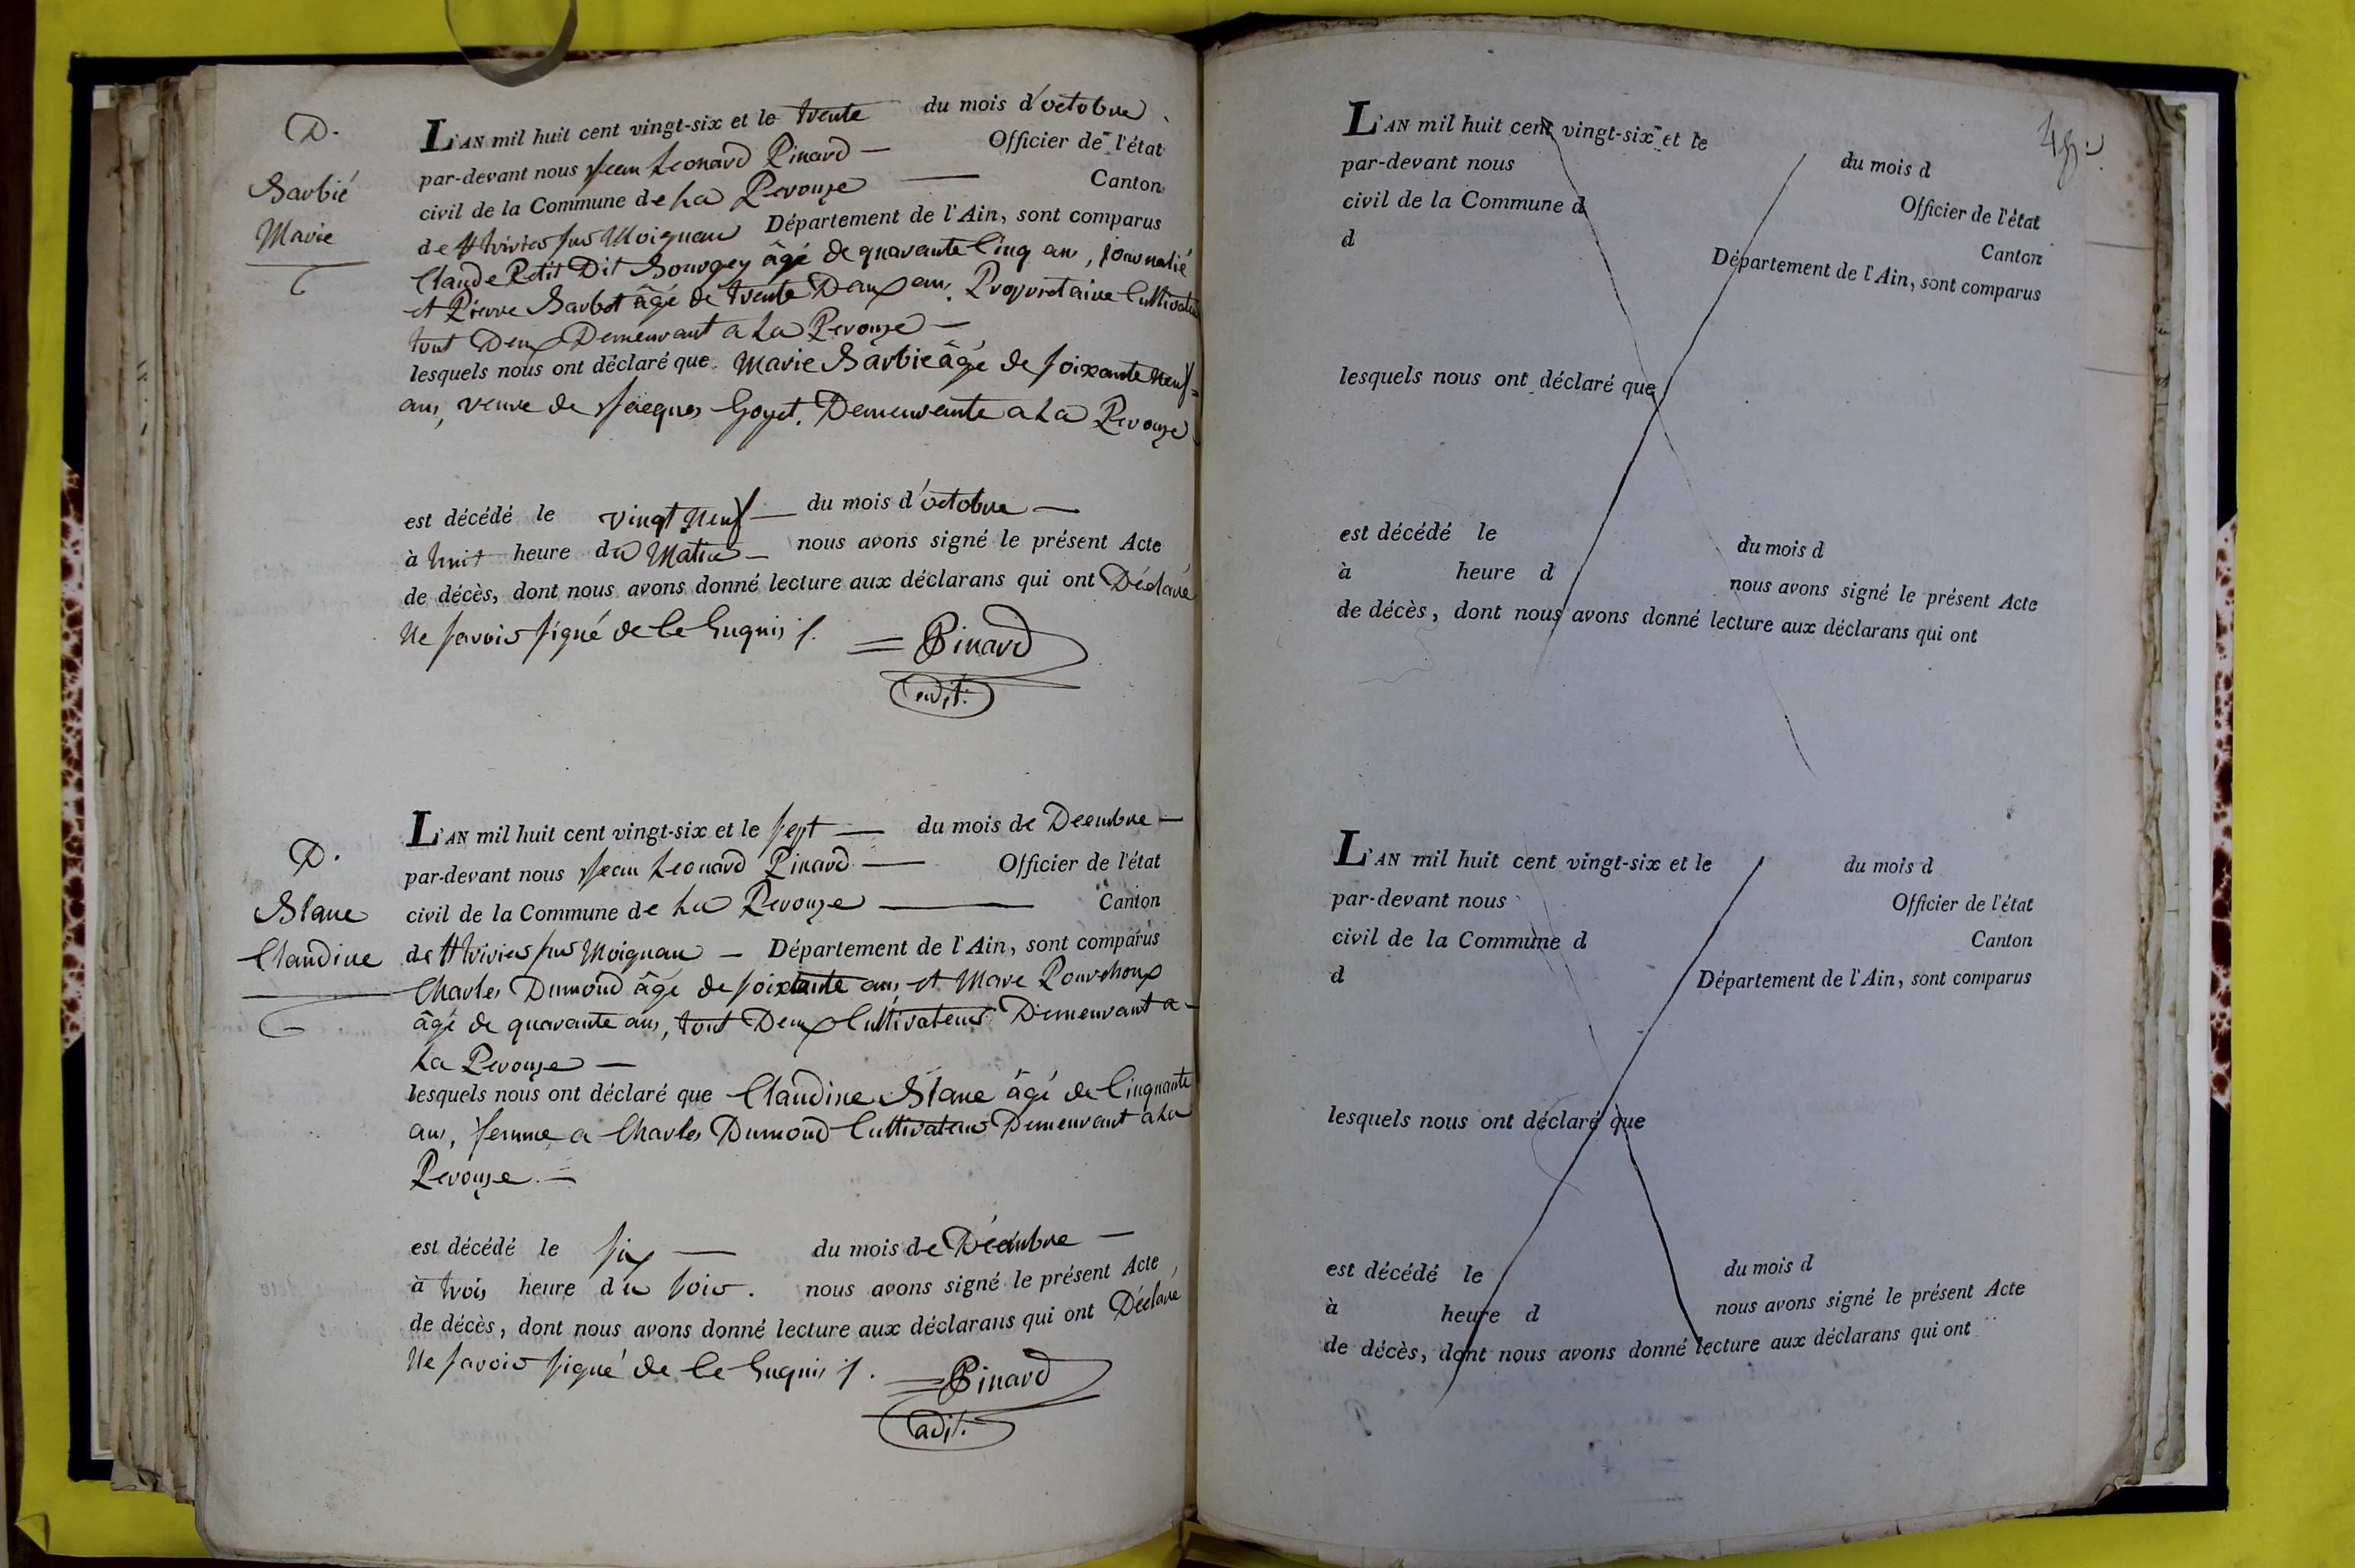 D.
Barbié
Marie
L'AN mil huit cent vingt-six et le trente du mois d'octobre
par-devant nous Jean Leonard Pinard — Officier de l'état
civil de la Commune de La Perouze — Canton
de St trivier sur Moignan Département de l'Ain, sont comparus
Claude Petit Dit Bourgey âgé de quarante Cinq ans, journalié
et Pierre Barbet âgé de trente Deux ans, Proprietaire Cultivateur
tout Deux Demeurant a La Perouze —
lesquels nous ont déclaré que Marie Barbié âgé de soixante neuf
ans, veuve de Jacques Goyet. Demeurante a La Perouze
est décédé le vingt neuf — du mois d'octobre —
à huit heure du Matin — nous avons signé le présent Acte
de décès, dont nous avons donné lecture aux déclarans qui ont Déclaré
Ne savoir signé de Ce Enquis
Pinard
adjt.
D.
Blanc
Claudine
L'AN mil huit cent vingt-six et le sept — du mois de Decembre —
par-devant nous Jean Leonard Pinard — Officier de l'état
civil de la Commune de La Perouze — Canton
de St trivier sur Moignan — Département de l'Ain, sont comparus
Charles Dumond âgé de soixante ans, et Marc Pourchoux
âgé de quarante ans, tout Deux Cultivateurs Demeurant a
La Perouze —
lesquels nous ont déclaré que Claudine Blanc âgé de Cinquante
ans, femme a Charles Dumond Cultivateur Demeurant a La
Perouze. —
est décédé le six — du mois de Décembre —
à trois heure du soir. nous avons signé le présent Acte
de décès, dont nous avons donné lecture aux déclarans qui ont Déclaré
Ne savoir signé de Ce Enquis
Pinard
adjt.
L'AN mil huit cent vingt-six et le du mois d
par-devant nous Officier de l'état
civil de la Commune d Canton
d Département de l'Ain, sont comparus
lesquels nous ont déclaré que
est décédé le du mois d
à heure d nous avons signé le présent Acte
de décès, dont nous avons donné lecture aux déclarans qui ont
L'AN mil huit cent vingt-six et le du mois d
par-devant nous Officier de l'état
civil de la Commune d Canton
d Département de l'Ain, sont comparus
lesquels nous ont déclaré que
est décédé le du mois d
à heure d nous avons signé le présent Acte
de décès, dont nous avons donné lecture aux déclarans qui ont